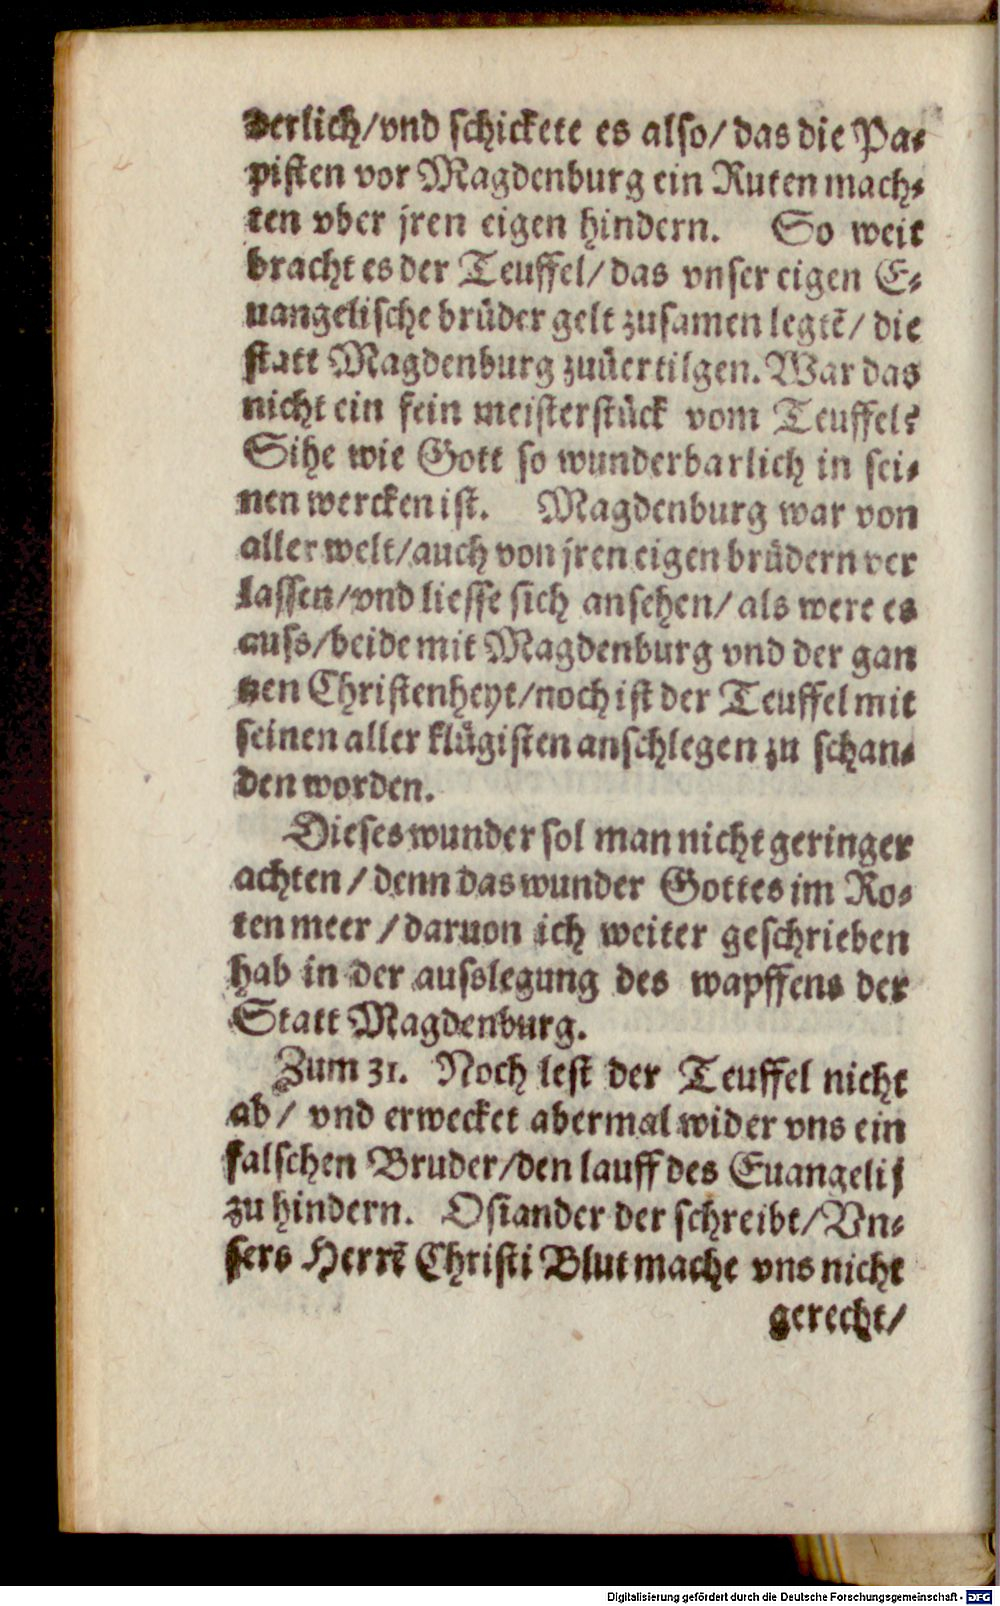 derlich/vnd schickete es also/ das die Pa⸗
pisten vor Magdenburg ein Ruten mach⸗
ten vber jren eigen hindern. So weit
bracht es der Teuffel/ das vnser eigen E⸗
uangelische brüder gelt zusamen legtē/ die
statt Magdenburg zuüertilgen. War das
nicht ein fein meisterstück vom Teuffel?
Sihe wie Gott so wunderbarlich in sei⸗
nen wercken ist. Magdenburg war von
aller welt/auch von jren eigen brüdern ver
lassen/vnd liesse sich ansehen/ als were es
auss/beide mit Magdenburg vnd der gan
tzen Christenheyt/noch ist der Teuffel mit
seinen aller klügisten anschlegen zu schan⸗
den worden.
Dieses wunder sol man nicht geringer
achten/ denn das wunder Gottes im Ro⸗
ten meer/ daruon ich weiter geschrieben
hab in der ausslegung des wapffens der
Statt Magdenburg.
Zum 31. Noch lest der Teuffel nicht
ab/ vnd erwecket abermal wider vns ein
falschen Bruder/den lauff des Euangelij
zu hindern. Osiander der schreibt/ Vn⸗
sers Herrē Christi Blut mache vns nicht
gerecht/
Digitalisierung gefördert durch die Deutsche Forschungsgemeinschaft - DFG